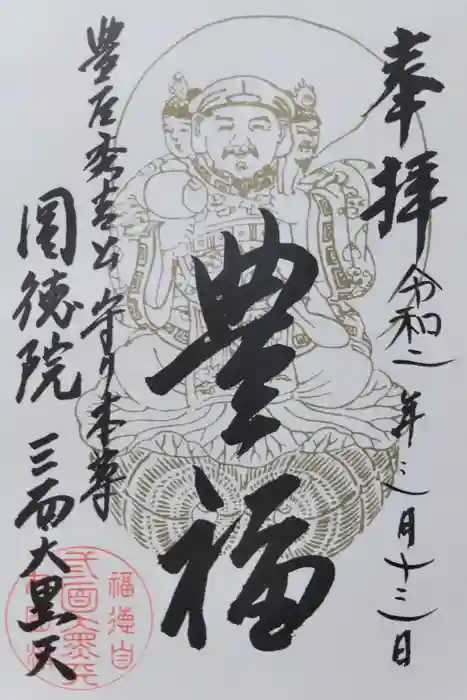 奉拝
令和二年二月十三日
豊福
豊臣秀吉公守り本尊
圓徳院
三面大黒天
福徳自